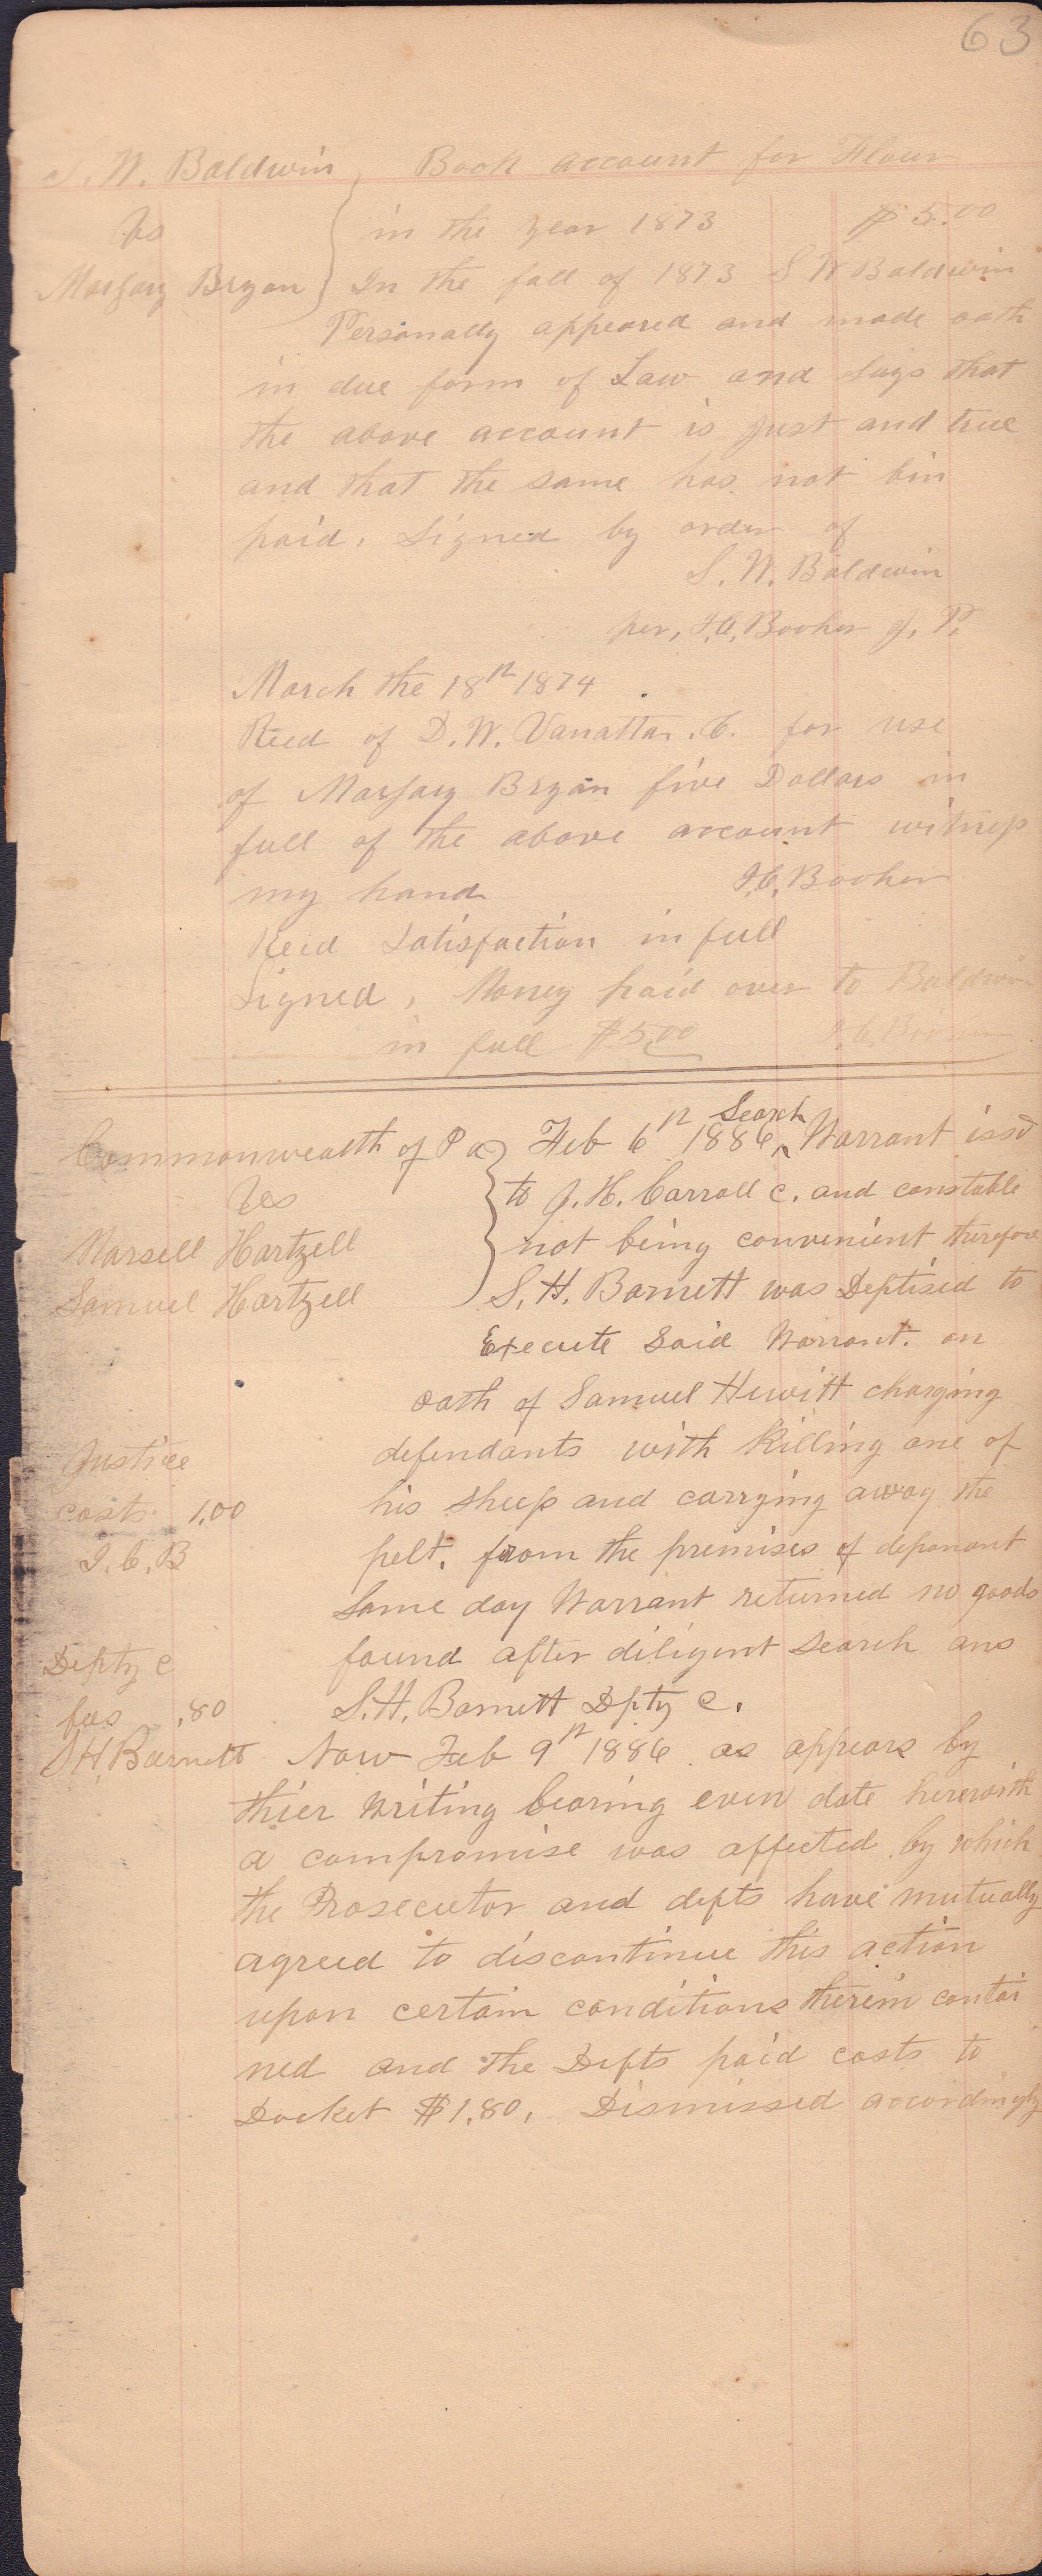 63
S. W. Baldwin } Book account for Flour
vs } in the year 1873 $5.00
Marjary Bryan } In the fall of 1873 S W Baldwin
Personally appeared and made oath
in due form of Law and Says that
the above account is just and true
and that the same has not bin
paid. Signed by order of
S. W. Baldwin
per, I. C. Booher J. P.
March the 18th 1874
Recd of D. W. Vanatta. C. for use
of Marjary Bryan five Dollars in
full of the above account witness
my hand I. C. Booher
Recd Satisfaction in full
Signed, Money paid over to Baldwin
in full $5.00 I. C. Booher
Commonwealth of Pa } Feb 6th 1886, Search Warrant issd
vs } to J. H. Carroll C. and constable
Marsell Hartzell } not being convenient therefore
Samuel Hartzell } S. H. Barnett was Deptised to
Execute Said Warrant. on
oath of Samuel Hewitt charging
Justice defendants with Killing one of
costs. 1.00 his sheep and carrying away the
I. C. B pelt. from the premises of deponant
Same day Warrant returned no goods
Depty C found after diligent search ans
fees .80 S. H. Barnett Dpty C.
S H, Barnett Now Feb 9th 1886 as appears by
thier writing bearing even date herewith
a compromise was affected by which
the Prosecutor and defts have mutually
agreed to discontinue this action
upon certain conditions therein contai
ned and the Defts paid costs to
Docket $1.80, Dismissed accordingly